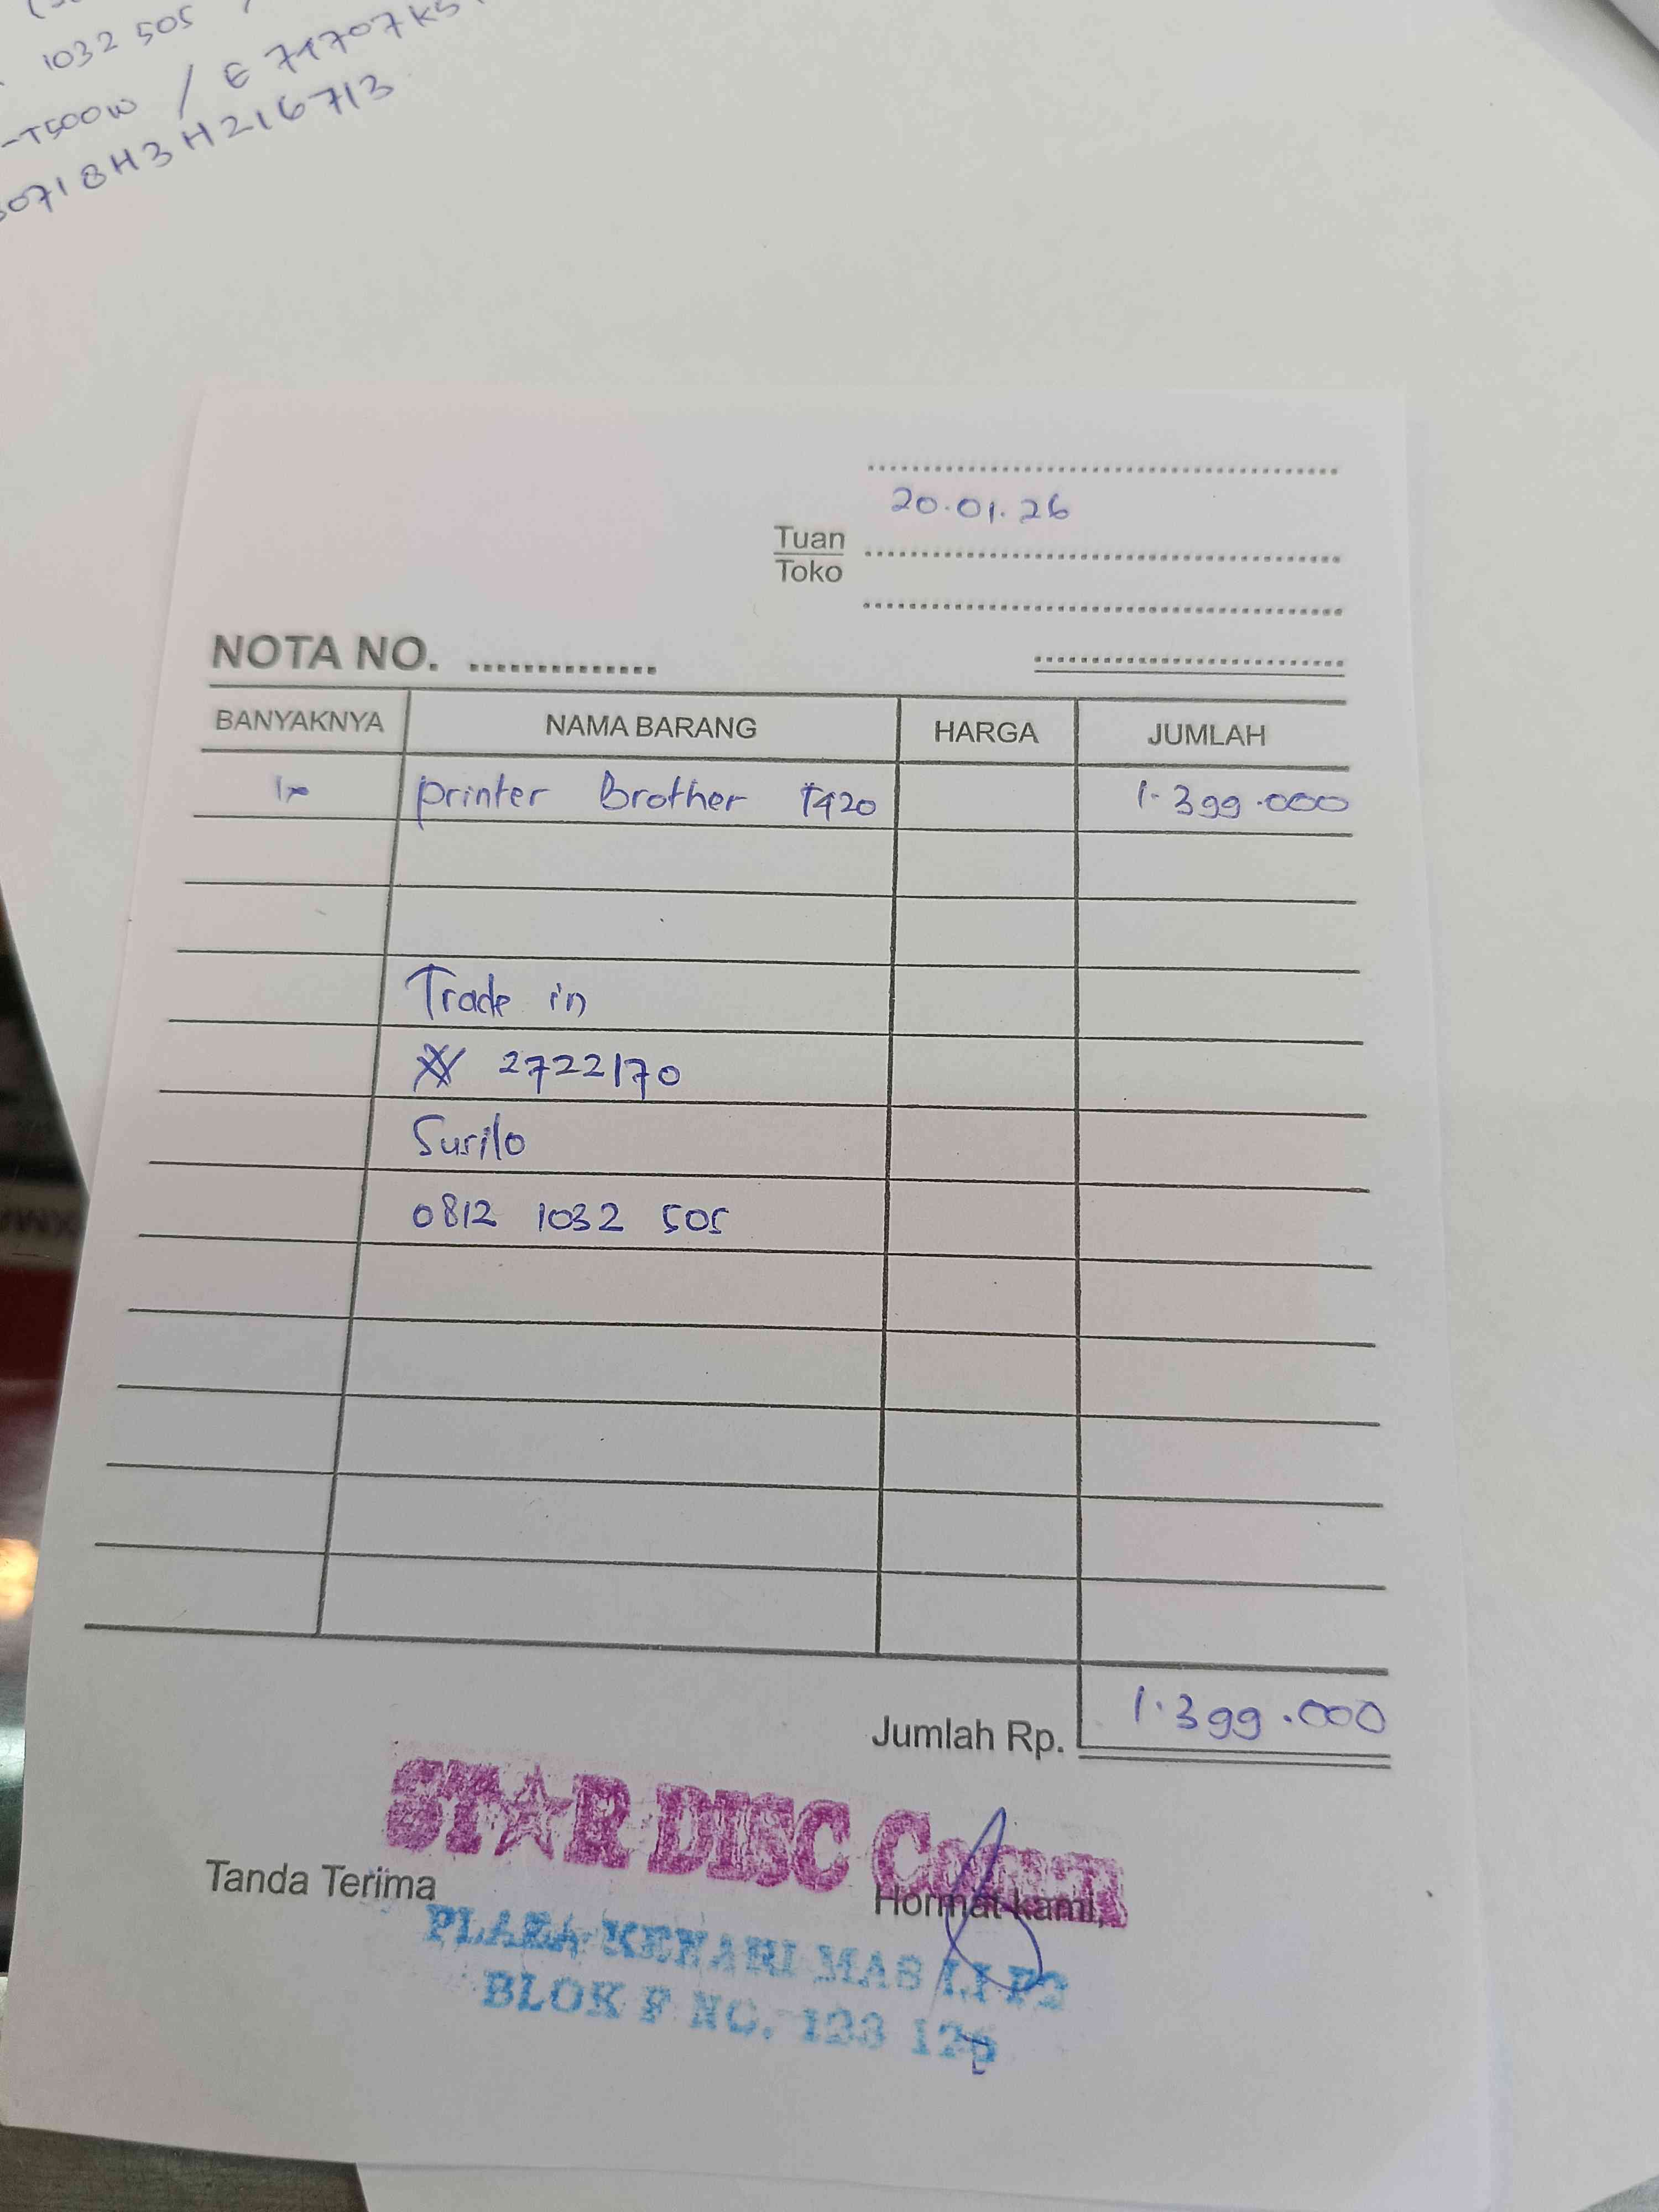 1032 505
-T500W / E 74707K5
30718H3H216713
20.01.26
Tuan
Toko
NOTA NO.
BANYAKNYA NAMA BARANG HARGA JUMLAH
1x printer Brother T420 1.399.000
Trade in
2722170
Surilo
0812 1032 505
Jumlah Rp. 1.399.000
STAR DISC Comp
Tanda Terima Hormat kami,
PLAZA KENARI MAS LT P2
BLOK F NO. 123 125